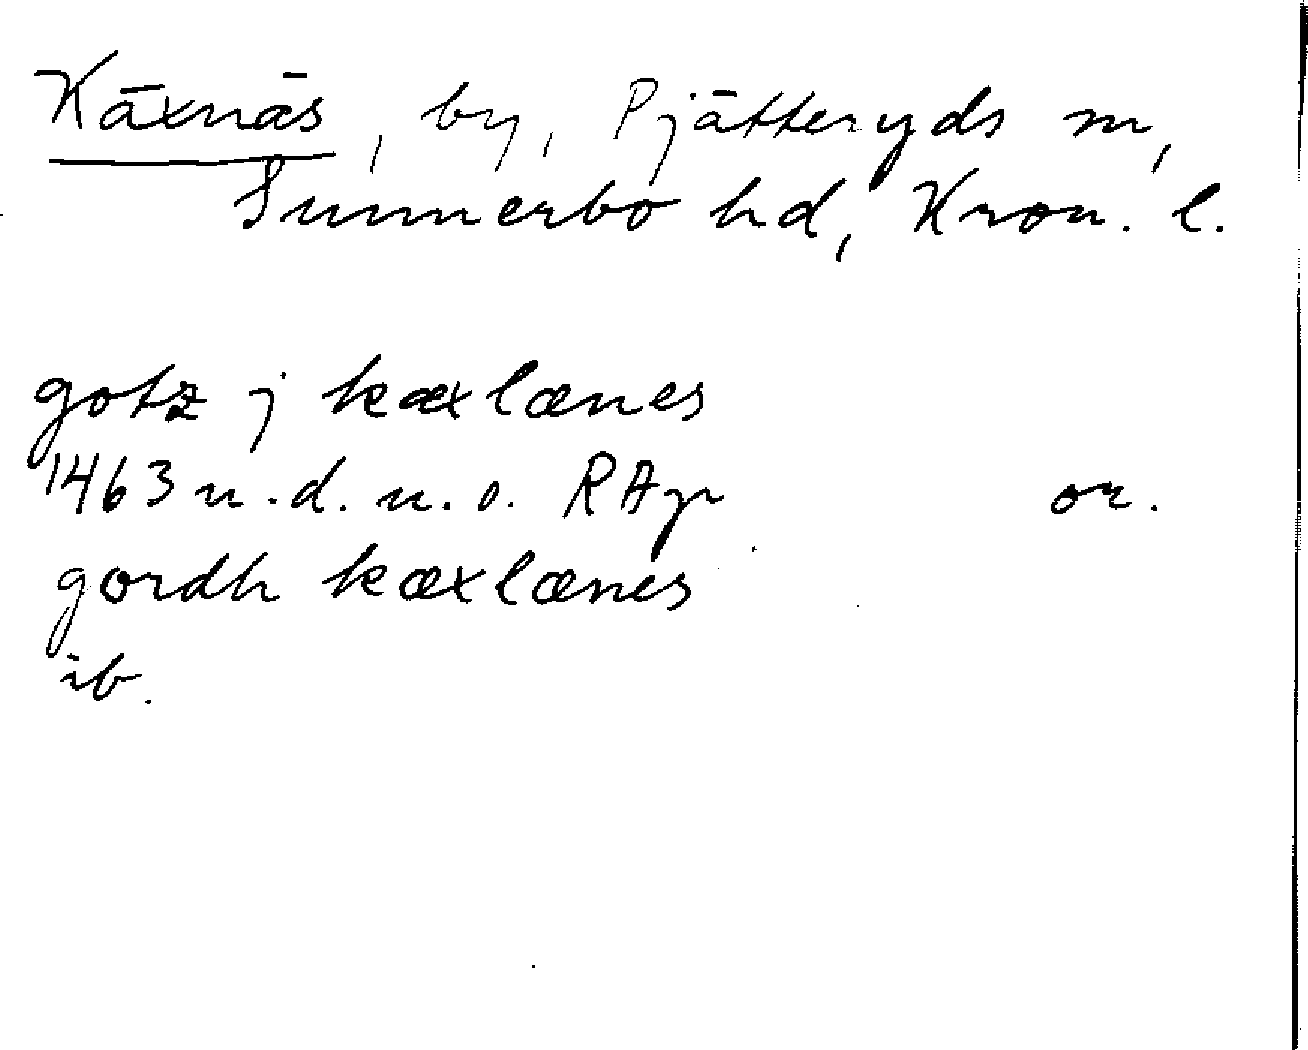 Käxnäs, by, Pjätteryds sn,
Sunnerbo hd, Kron. l.
gotz j kæxlænes
1463 u.d. u.o. RAp or.
gordh kæxlænes
ib.